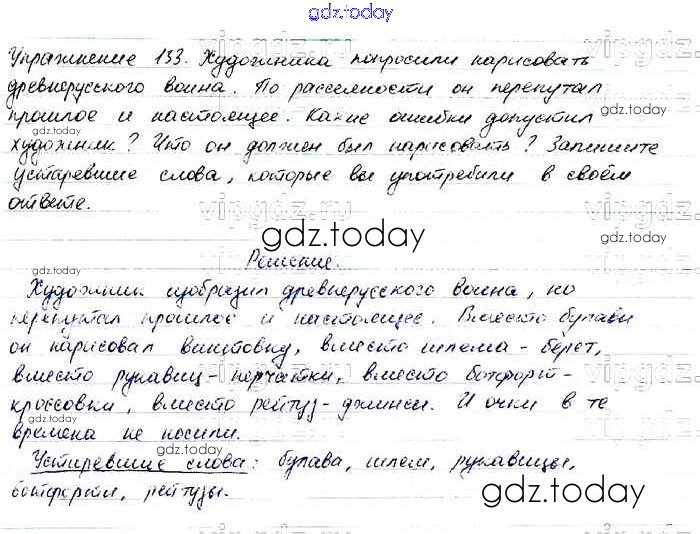 gdz.today
Упражнение 133. Художника попросили нарисовать
древнерусского воина. По рассеянности он перепутал
прошлое и настоящее. Какие ошибки допустил
gdz.today
gdz.today
художник? Что он должен был нарисовать? Запишите
устаревшие слова, которые вы употребили в своём
ответе.
vipgdz.ru
gdz.today
gdz.today
Решение.
Художник изобразил древнерусского воина, но
перепутал прошлое и настоящее. Вместо булавы
он нарисовал винтовку, вместо шлема - берет,
вместо рукавиц - перчатки, вместо ботфорт -
кроссовки, вместо рейтуз - джинсы. И очки в те
gdz.today
gdz.today
времена не носили.
Устаревшие слова: булава, шлем, рукавицы,
ботфорты, рейтузы.
gdz.today
gdz.today